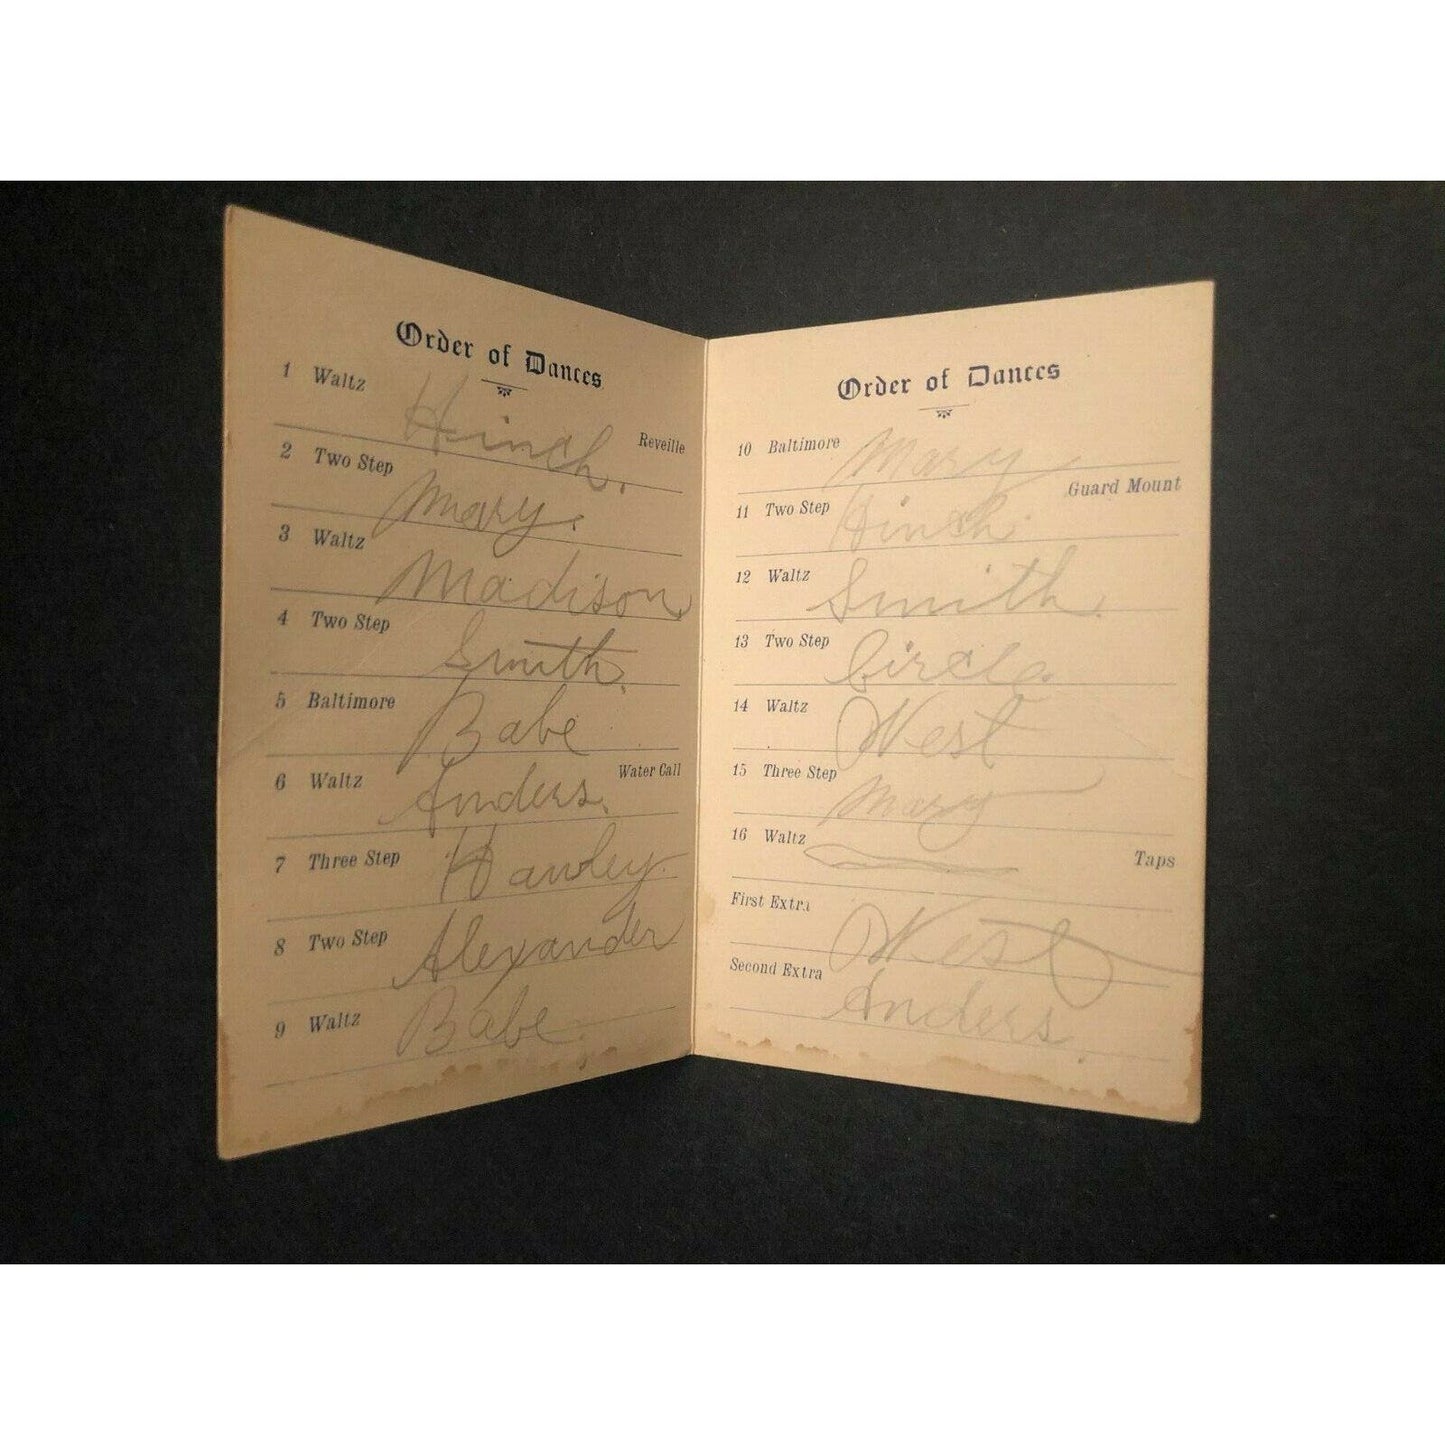 Order of Dances
1 Waltz Hinch. Reveille
2 Two Step Mary.
3 Waltz Madison
4 Two Step Smith.
5 Baltimore Babe
6 Waltz Anders. Water Call
7 Three Step Hawley.
8 Two Step Alexander
9 Waltz Babe
Order of Dances
10 Baltimore Mary
11 Two Step Hinch. Guard Mount
12 Waltz Smith.
13 Two Step Circle.
14 Waltz West
15 Three Step Mary
16 Waltz Taps
First Extra West
Second Extra Anders.